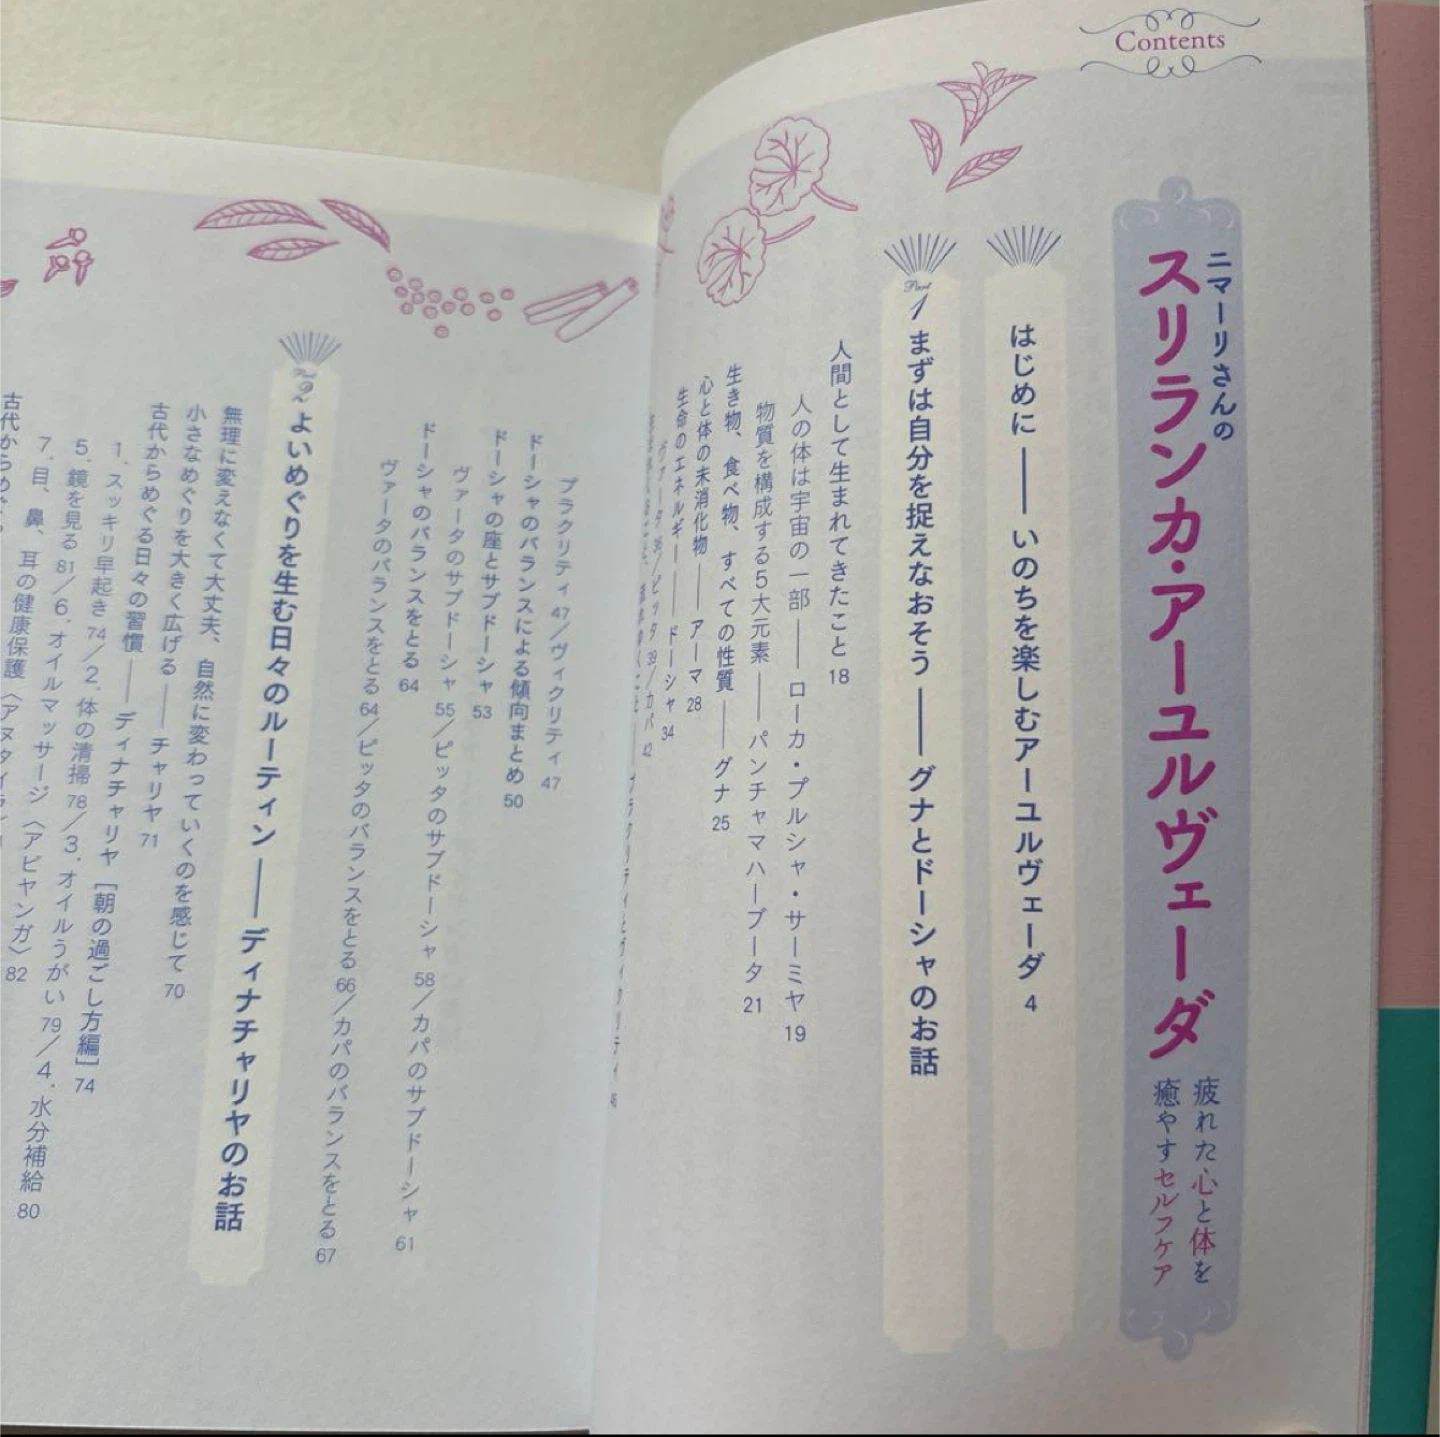 Contents
ニマーリさんの
スリランカ・アーユルヴェーダ
疲れた心と体を
癒やすセルフケア
はじめに ―― いのちを楽しむアーユルヴェーダ 4
Part 1 まずは自分を捉えなおそう ―― グナとドーシャのお話
人間として生まれてきたこと 18
人の体は宇宙の一部 ―― ローカ・プルシャ・サーミヤ 19
物質を構成する5大元素 ―― パンチャマハーブータ 21
生き物、食べ物、すべての性質 ―― グナ 25
心と体の未消化物 ―― アーマ 28
生命のエネルギー ―― ドーシャ 34
ヴァータ 36/ピッタ 39/カパ 42
プラクリティとヴィクリティ 46
プラクリティ 47/ヴィクリティ 47
ドーシャのバランスによる傾向まとめ 50
ドーシャの座とサブドーシャ 53
ヴァータのサブドーシャ 55/ピッタのサブドーシャ 58/カパのサブドーシャ 61
ドーシャのバランスをとる 64
ヴァータのバランスをとる 64/ピッタのバランスをとる 66/カパのバランスをとる 67
Part 2 よいめぐりを生む日々のルーティン ―― ディナチャリヤのお話
無理に変えなくて大丈夫、自然に変わっていくのを感じて 70
小さなめぐりを大きく広げる ―― チャリヤ 71
古代からめぐる日々の習慣 ―― ディナチャリヤ [朝の過ごし方編] 74
1. スッキリ早起き 74/2. 体の清掃 78/3. オイルうがい 79/4. 水分補給 80
5. 鏡を見る 81/6. オイルマッサージ〈アビヤンガ〉 82
7. 目、鼻、耳の健康保護
古代から